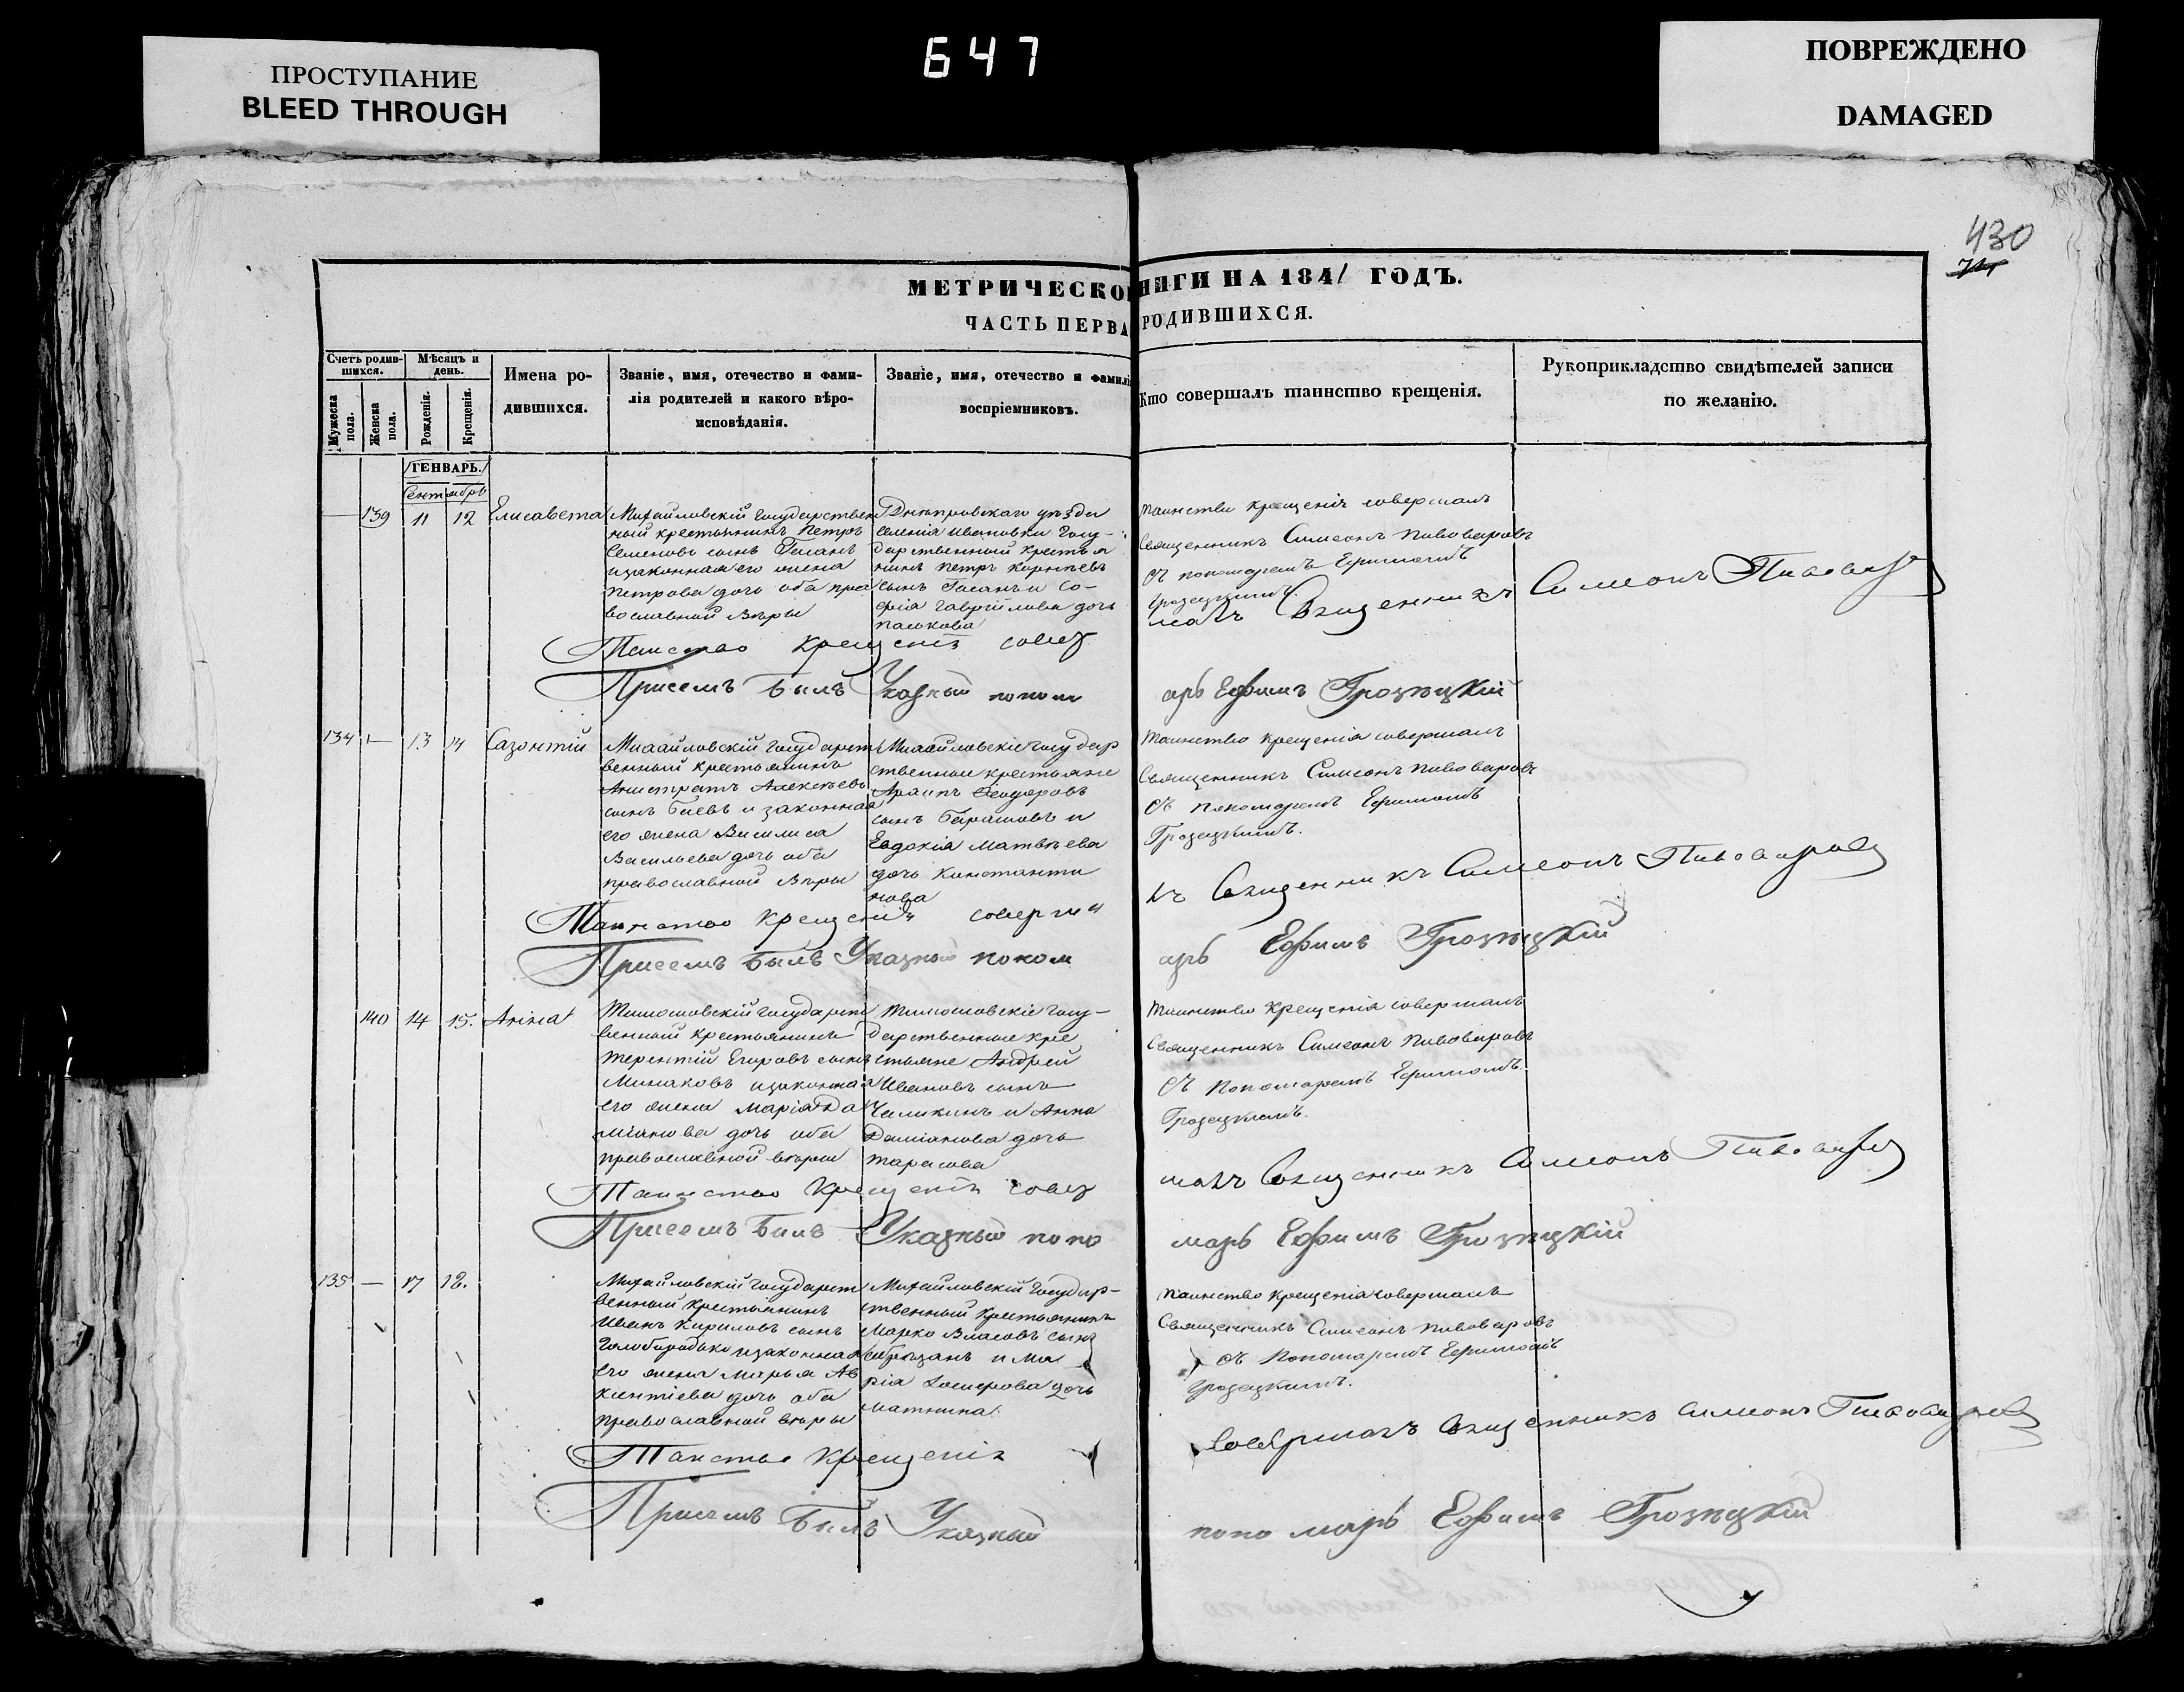 ПРОСТУПАНИЕ
BLEED THROUGH
647
ПОВРЕЖДЕНО
DAMAGED
430
МЕТРИЧЕСКО НИГИ НА 1841 ГОДЪ.
ЧАСТЬ ПЕРВА РОДИВШИХСЯ.
Счетъ родив-
шихся.
Мужеска
пола.
Женска
пола.
Мѣсяцъ и
день.
Рожденія.
Крещенія.
Имена ро-
дившихся.
Званіе, имя, отечество и фами-
лія родителей и какого вѣро-
исповѣданія.
Званіе, имя, отечество и фамилі
воспріемниковъ.
Кто совершалъ таинство крещенія.
Рукоприкладство свидѣтелей записи
по желанію.
ГЕНВАРЬ.
Сентябрь
139
11
12
Елисавета
Михайловскій государствен
ный крестьянинъ Петръ
Семеновъ сынъ
и законная его жена
Петрова дочь оба пра
вославной вѣры
Днѣпровскаго уѣзда
селенія Ивановки Госу-
дарственный крестья
нинъ Петръ Корнѣевъ
сынъ и Со-
фія Гавріилова дочь
Таинство крещенія совершалъ
Священникъ Симеонъ Пивоваровъ
съ пономаремъ Ефимомъ
Грозецкимъ.
Таинство крещенія совер
шалъ Священникъ Симеонъ Пивоваровъ
Присемъ былъ Указный поном
арь Ефимъ Грозецкій
134
—
13
14
Созонтій
Михайловскій государст
венный крестьянинъ
Алексѣевъ
сынъ и законная
его жена Василиса
Васильева дочь оба
православной вѣры
Михайловскіе государ
ственные крестьяне
Феодоровъ
сынъ и
Евдокія Матвѣева
дочь Константи
нова
Таинство крещенія совершалъ
Священникъ Симеонъ Пивоваровъ
съ пономаремъ Ефимомъ
Грозецкимъ.
Таинство крещенія соверша
лъ Священникъ Симеонъ Пивоваровъ
Присемъ былъ Указный поном
арь Ефимъ Грозецкій
140
14
15.
Анна
Тимошовскій государст
венный крестьянинъ
Терентій Егоровъ сынъ
Минаковъ и законная
его жена Марія Да
міанова дочь оба
православной вѣры
Тимошовскіе госу-
дарственные кре
стьяне Андрей
Ивановъ сынъ
и Анна
Даміанова дочь
Тарасова
Таинство крещенія совершалъ
Священникъ Симеонъ Пивоваровъ
съ Пономаремъ Ефимомъ
Грозецкимъ.
Таинство крещенія совер
шалъ Священникъ Симеонъ Пивоваровъ
Присемъ былъ Указный поно
марь Ефимъ Грозецкій
135
—
17
18.
Михайловскій государст
венный крестьянинъ
Иванъ Кириловъ сынъ
Голобородько и законная
его жена Марья Ав
ксентіева дочь оба
православной вѣры
Михайловскій государ-
ственный крестьянинъ
Марко Власовъ сынъ
и Ма
рія дочь
Таинство крещенія совершалъ
Священникъ Симеонъ Пивоваровъ
съ Пономаремъ Ефимомъ
Грозецкимъ.
Таинство крещенія
совершалъ Священникъ Симеонъ Пивоваровъ
Присемъ былъ Указный
пономарь Ефимъ Грозецкій